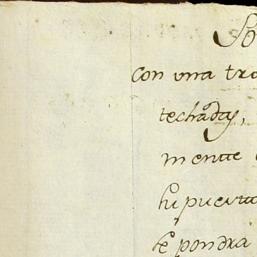 So
con una tra
techada,
mente
su puerta
se pondra